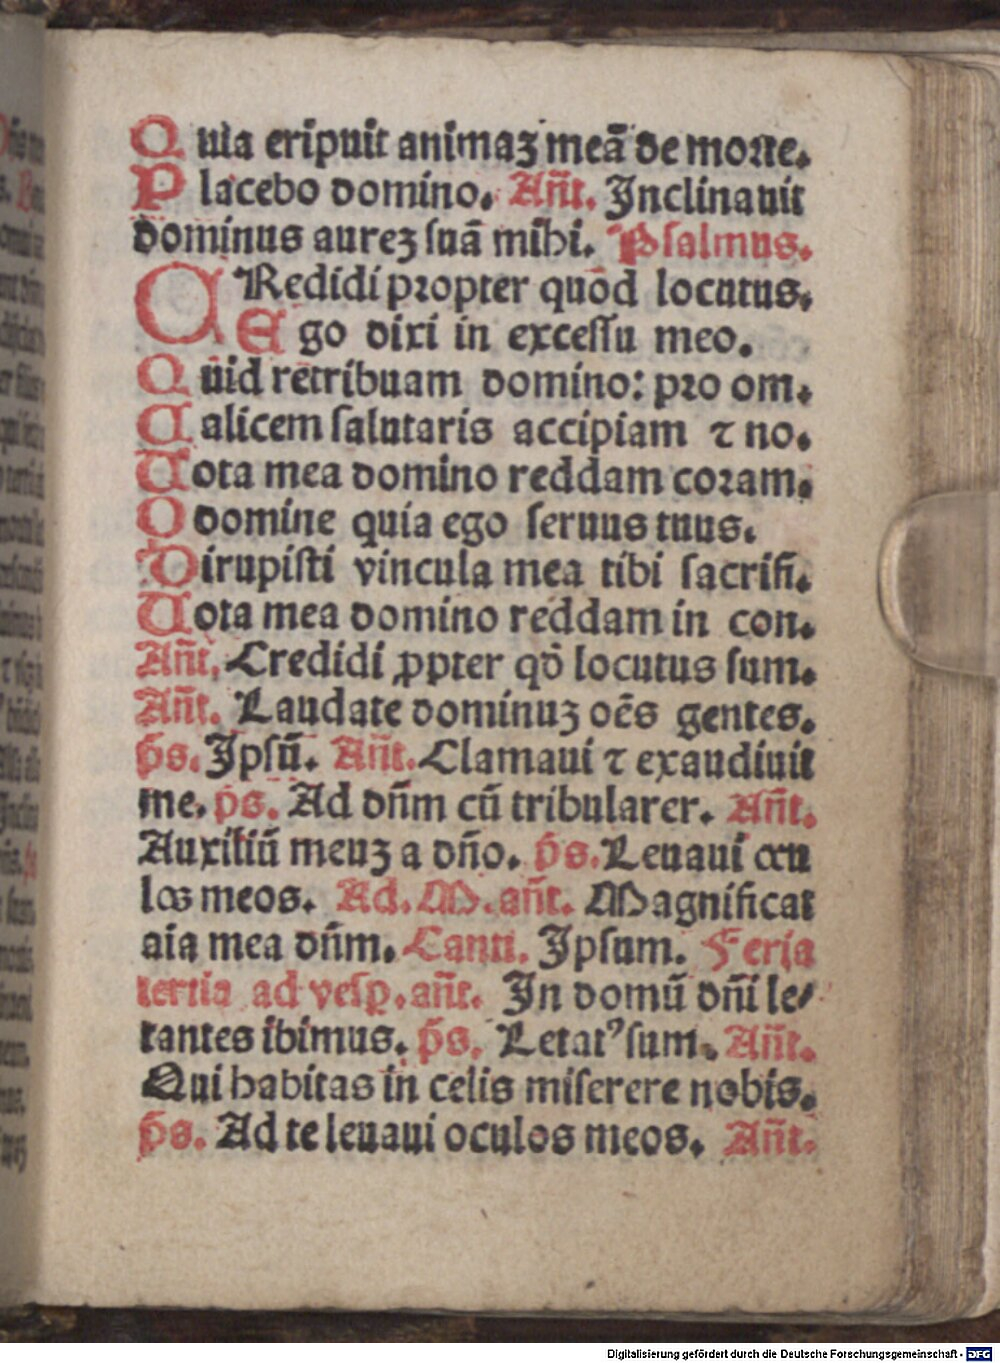 Quia eripuit animaʒ meā de morte.
Placebo domino. Añt. Inclinauit
dominus aureʒ suā mihi. Psalmus.
CRedidi propter quod locutus.
Ego dixi in excessu meo.
Quid retribuam domino: pro om.
Calicem salutaris accipiam ⁊ no.
Uota mea domino reddam coram.
O domine quia ego seruus tuus.
Dirupisti vincula mea tibi sacrifi.
Uota mea domino reddam in con.
Añt. Credidi ꝓpter qđ locutus sum.
Añt. Laudate dominuʒ oēs gentes.
p̄s. Ipsū. Añt. Clamaui ⁊ exaudiuit
me. p̄s. Ad dñm cū tribularer. Añt.
Auxiliū meuʒ a dño. p̄s. Leuaui ocu
los meos. Ad. M. añt. Magnificat
aīa mea dñm. Canti. Ipsum. Feria
tertia ad vesp. añt. In domū dñi le⸗
tantes ibimus. p̄s. Letatꝰ sum. Añt.
Qui habitas in celis miserere nobis.
p̄s. Ad te leuaui oculos meos. Añt.
Digitalisierung gefördert durch die Deutsche Forschungsgemeinschaft - DFG